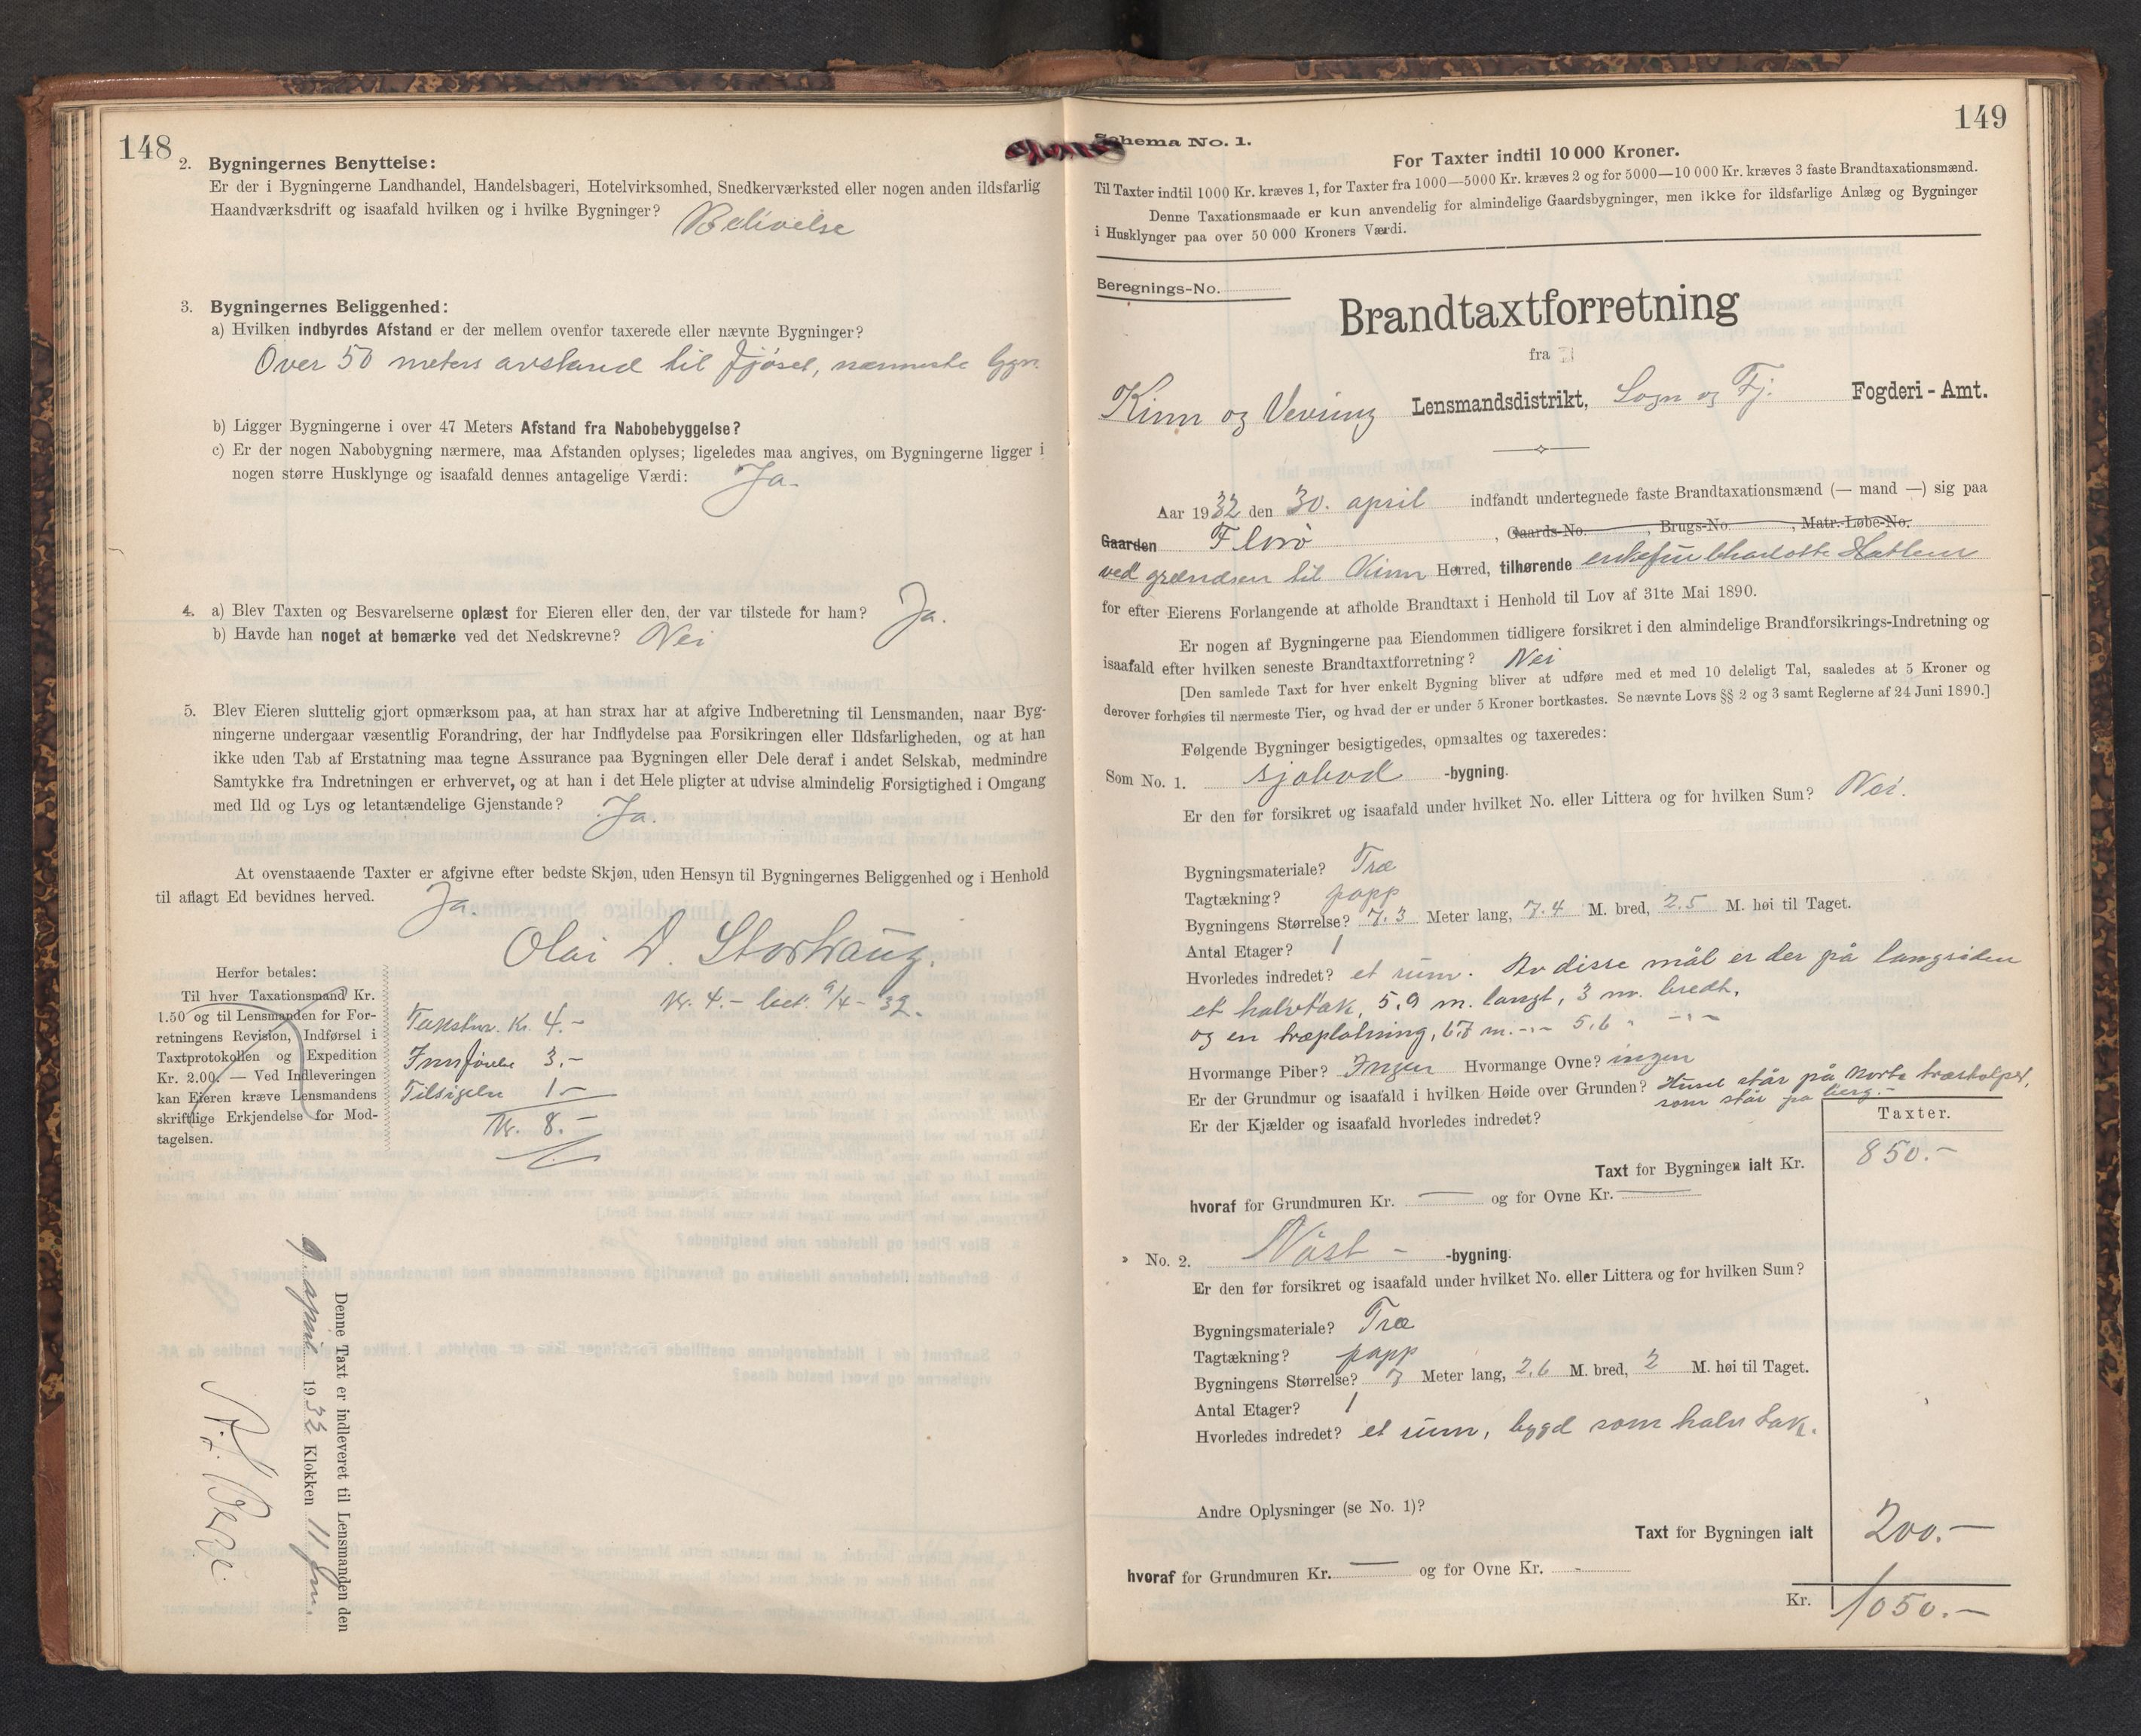 148
2. Bygningernes Benyttelse:
Er der i Bygningerne Landhandel, Handelsbageri, Hotelvirksomhed, Snedkerværksted eller nogen anden ildsfarlig
Haandværksdrift og isaafald hvilken og i hvilke Bygninger? Belivelse
3. Bygningernes Beliggenhed:
a) Hvilken indbyrdes Afstand er der mellem ovenfor taxerede eller nævnte Bygninger?
Over 50 meters avstand til fjøset, nærmeste bygn.
b) Ligger Bygningerne i over 47 Meters Afstand fra Nabobebyggelse?
c) Er der nogen Nabobygning nærmere, maa Afstanden oplyses; ligeledes maa angives, om Bygningerne ligger i
nogen større Husklynge og isaafald dennes antagelige Værdi: Ja.
4. a) Blev Taxten og Besvarelserne oplæst for Eieren eller den, der var tilstede for ham? Ja.
b) Havde han noget at bemærke ved det Nedskrevne? Nei
5. Blev Eieren sluttelig gjort opmærksom paa, at han strax har at afgive Indberetning til Lensmanden, naar Byg-
ningerne undergaar væsentlig Forandring, der har Indflydelse paa Forsikringen eller Ildsfarligheden, og at han
ikke uden Tab af Erstatning maa tegne Assurance paa Bygningen eller Dele deraf i andet Selskab, medmindre
Samtykke fra Indretningen er erhvervet, og at han i det Hele pligter at udvise almindelig Forsigtighed i Omgang
med Ild og Lys og letantændelige Gjenstande? Ja.
At ovenstaaende Taxter er afgivne efter bedste Skjøn, uden Hensyn til Bygningernes Beliggenhed og i Henhold
til aflagt Ed bevidnes herved. Ja.
Olai D. Storhaug.
Kr. 4.- bet. 9/4 - 32.
Herfor betales:
Til hver Taxationsmand Kr.
1.50 og til Lensmanden for For-
retningens Revision, Indførsel i
Taxtprotokollen og Expedition
Kr. 2.00. — Ved Indleveringen
kan Eieren kræve Lensmandens
skriftlige Erkjendelse for Mod-
tagelsen.
Takstm. Kr. 4.-
Innførelse 3.-
Tilsigelse 1-
Kr. 8.-
Denne Taxt er indleveret til Lensmanden den
9. april 1932 Klokken 11 fm.
Berge.
149
Schema No. 1.
For Taxter indtil 10 000 Kroner.
Til Taxter indtil 1000 Kr. kræves 1, for Taxter fra 1000—5000 Kr. kræves 2 og for 5000—10 000 Kr. kræves 3 faste Brandtaxationsmænd.
Denne Taxationsmaade er kun anvendelig for almindelige Gaardsbygninger, men ikke for ildsfarlige Anlæg og Bygninger
i Husklynger paa over 50 000 Kroners Værdi.
Beregnings-No.
Brandtaxtforretning
fra
Kinn og Vevring Lensmandsdistrikt, Sogn og Fj. Fogderi - Amt.
Aar 1932 den 30. april indfandt undertegnede faste Brandtaxationsmænd (— mand —) sig paa
Gaarden Florø, Gaards-No. , Brugs-No. , Matr.-Løbe-No.
ved grændsen til Kinn Herred, tilhørende enkefru Charlotte Hatlem
for efter Eierens Forlangende at afholde Brandtaxt i Henhold til Lov af 31te Mai 1890.
Er nogen af Bygningerne paa Eiendommen tidligere forsikret i den almindelige Brandforsikrings-Indretning og
isaafald efter hvilken seneste Brandtaxtforretning? Nei
[Den samlede Taxt for hver enkelt Bygning bliver at udføre med et med 10 deleligt Tal, saaledes at 5 Kroner og
derover forhøies til nærmeste Tier, og hvad der er under 5 Kroner bortkastes. Se nævnte Lovs §§ 2 og 3 samt Reglerne af 24 Juni 1890.]
Følgende Bygninger besigtigedes, opmaaltes og taxeredes:
Som No. 1. sjøbod -bygning.
Er den før forsikret og isaafald under hvilket No. eller Littera og for hvilken Sum? Nei.
Bygningsmateriale? Træ
Tagtækning? papp
Bygningens Størrelse? 7.3 Meter lang, 7.4 M. bred, 2.5 M. høi til Taget.
Antal Etager? 1
Hvorledes indredet? et rum. Av disse mål er der på langsiden
et halvtak, 5.9 m. langt, 3 m. bredt,
og en træplatning, 6.7 m. -"- 5.6 " -"-
Hvormange Piber? Ingen Hvormange Ovne? ingen
Er der Grundmur og isaafald i hvilken Høide over Grunden? Huset står på korte træstolper,
som står på berg.-
Er der Kjælder og isaafald hvorledes indredet?
Taxter.
Taxt for Bygningen ialt Kr. 850.-
hvoraf for Grundmuren Kr. — og for Ovne Kr. —
" No. 2. Nåst - -bygning.
Er den før forsikret og isaafald under hvilket No. eller Littera og for hvilken Sum?
Bygningsmateriale? Træ
Tagtækning? papp
Bygningens Størrelse? 7 Meter lang, 2.6 M. bred, 2 M. høi til Taget.
Antal Etager? 1
Hvorledes indredet? et rum, bygd som halv tak.
Andre Oplysninger (se No. 1)?
Taxt for Bygningen ialt 200.-
hvoraf for Grundmuren Kr. — og for Ovne Kr. -
Kr. 1050.-